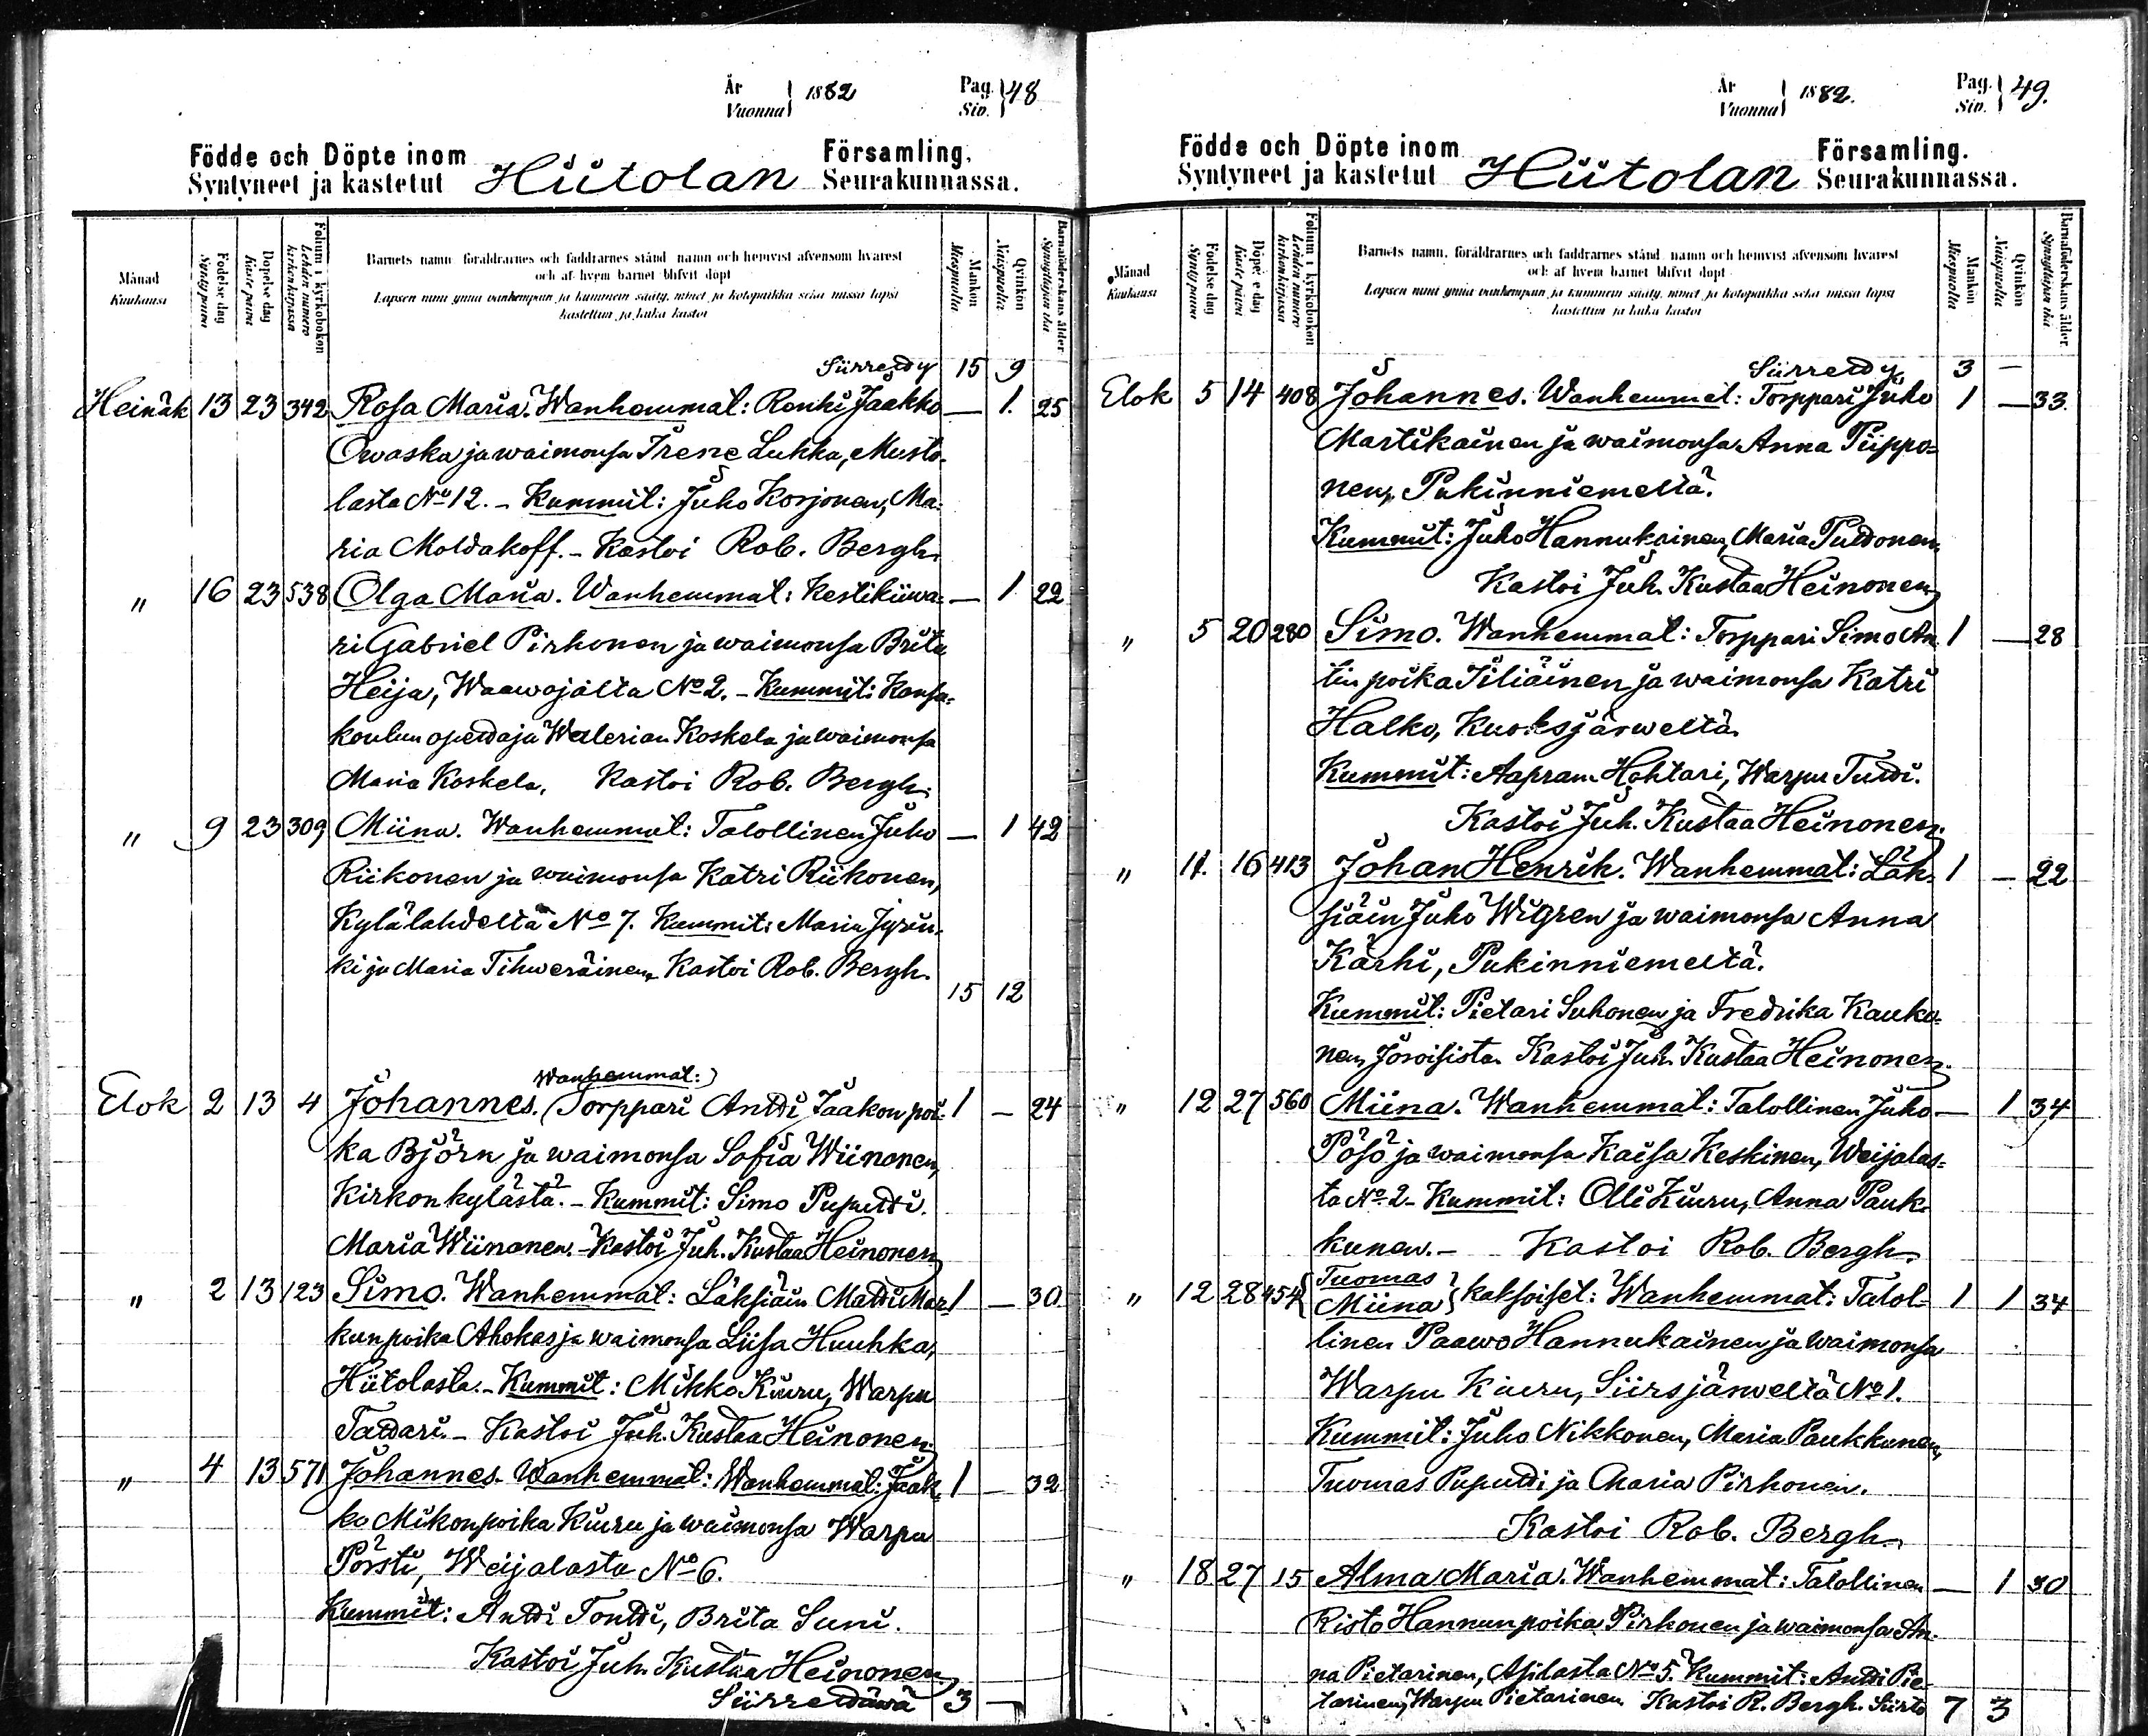 År
Vuonna } 1882
Pag.
Siv. } 48
Födde och Döpte inom Hiitolan Församling.
Syntyneet ja kastetut Seurakunnassa.
Månad
Kuukausi
Födelse dag
Synty päivä
Döpelse dag
Kaste päivä
Folium i kyrkoboken
Lehden numero kirkonkirjassa
Barnets namn, föräldrarnes och faddrarnes stånd, namn och hemvist äfvensom hvarest
och af hvem barnet blifvit döpt
Lapsen nimi ynnä vanhempain ja kummein sääty, nimet ja kotopaikka sekä missä lapsi
kastettiin ja kuka kastoi
Mankön
Miespuolia
Qvinkön
Naispuolia
Barnaföderskans ålder
Synnyttäjän ikä
Siirretty 15 9
Heinäk 13 23 342 Rosa Maria. Wanhemmat: Renki Jaakko — 1. 25
Owaska ja waimonsa Irene Lukka, Musto-
lasta No 12. - Kummit: Juho Korjonen, Ma-
ria Moldakoff. - Kastoi Rob. Bergh.
" 16 23 538 Olga Maria. Wanhemmat: Kestikiiwa- — 1 22
ri Gabriel Pirhonen ja waimonsa Brita
Heija, Waawojalta No 2. - Kummit: Kansa-
koulun opettaja Walerian Koskela ja waimonsa
Maria Koskela. Kastoi Rob. Bergh.
" 9 23 309 Miina. Wanhemmat: Talollinen Juho — 1 42
Riikonen ja waimonsa Katri Riikonen,
Kylälahdelta No 7. Kummit: Maria
ki ja Maria Tihweräinen. Kastoi Rob. Bergh.
15 12
Wanhemmat:
Elok 2 13 4 Johannes. Torppari Antti Jaakon poi- 1 — 24
ka Björn ja waimonsa Sofia Wiinonen,
Kirkonkylästä. - Kummit: Simo Puputti.
Maria Wiinonen. - Kastoi Juh. Kustaa Heinonen
" 2 13 123 Simo. Wanhemmat: Läksiäin Matti Mar- 1 — 30
kunpoika Ahokas ja waimonsa Liisa Huuhka,
Hiitolasta. - Kummit: Mikko Kiuru, Warpu
Tattari. - Kastoi Juh. Kustaa Heinonen.
" 4 13 571 Johannes. Wanhemmat: Wanhemmat: Jaak- 1 — 32
ko Mikonpoika Kiuru ja waimonsa Warpu
Pörsti, Weijalasta No 6.
Kummit: Antti Tontti, Brita Suni.
Kastoi Juh. Kustaa Heinonen
Siirrettäwä 3 —
År
Vuonna } 1882.
Pag.
Siv. } 49.
Födde och Döpte inom Hiitolan Församling.
Syntyneet ja kastetut Seurakunnassa.
Månad
Kuukausi
Födelse dag
Synty päivä
Döpelse dag
Kaste päivä
Folium i kyrkoboken
Lehden numero kirkonkirjassa
Barnets namn, föräldrarnes och faddrarnes stånd, namn och hemvist äfvensom hvarest
och af hvem barnet blifvit döpt
Lapsen nimi ynnä vanhempain ja kummein sääty, nimet ja kotopaikka sekä missä lapsi
kastettiin ja kuka kastoi
Mankön
Miespuolia
Qvinkön
Naispuolia
Barnaföderskans ålder.
Synnyttäjän ikä
Siirretty 3 —
Elok 5 14 408 Johannes. Wanhemmat: Torppari Juho 1 — 33.
Martikainen ja waimonsa Anna Piippo-
nen, Pukinniemeltä.
Kummit: Juho Hannukainen, Maria Puttonen.
Kastoi Juh. Kustaa Heinonen
" 5 20 280 Simo. Wanhemmat: Torppari Simo An- 1 — 28
tin poika Iiliäinen ja waimonsa Katri
Halko, Kuoksjärweltä.
Kummit: Aapram Hohtari, Warpu Tutti.
Kastoi Juh. Kustaa Heinonen.
" 11. 16 413 Johan Henrik. Wanhemmat: Läk- 1 — 22
siäin Juho Wigren ja waimonsa Anna
Kärhi, Pukinniemeltä.
Kummit: Pietari Suhonen ja Fredrika Kauko-
nen, Joroisista. Kastoi Juh. Kustaa Heinonen.
" 12 27 560 Miina. Wanhemmat: Talollinen Juho — 1 34
Pösö ja waimonsa Kaisa Keskinen, Weijalas-
ta No 2 - Kummit: Olli Kiuru, Anna Pauk-
kunen. - Kastoi Rob. Bergh.
" 12 28 454 { Tuomas
Miina } kaksoiset: Wanhemmat: Talol- 1 1 34
linen Paawo Hannukainen ja waimonsa
Warpu Kiuru, Siirsjärweltä No 1.
Kummit: Juho Nikkonen, Maria Paukkunen,
Tuomas Puputti ja Maria Pirhonen.
Kastoi Rob. Bergh.
" 18 27 15 Alma Maria. Wanhemmat: Talollinen — 1 30
Risto Hannunpoika Pirhonen ja waimonsa An-
na Pietarinen, Asilasta No 5. Kummit: Antti Pie-
tarinen, Warpu Pietarinen. Kastoi R. Bergh. Siirto 7 3